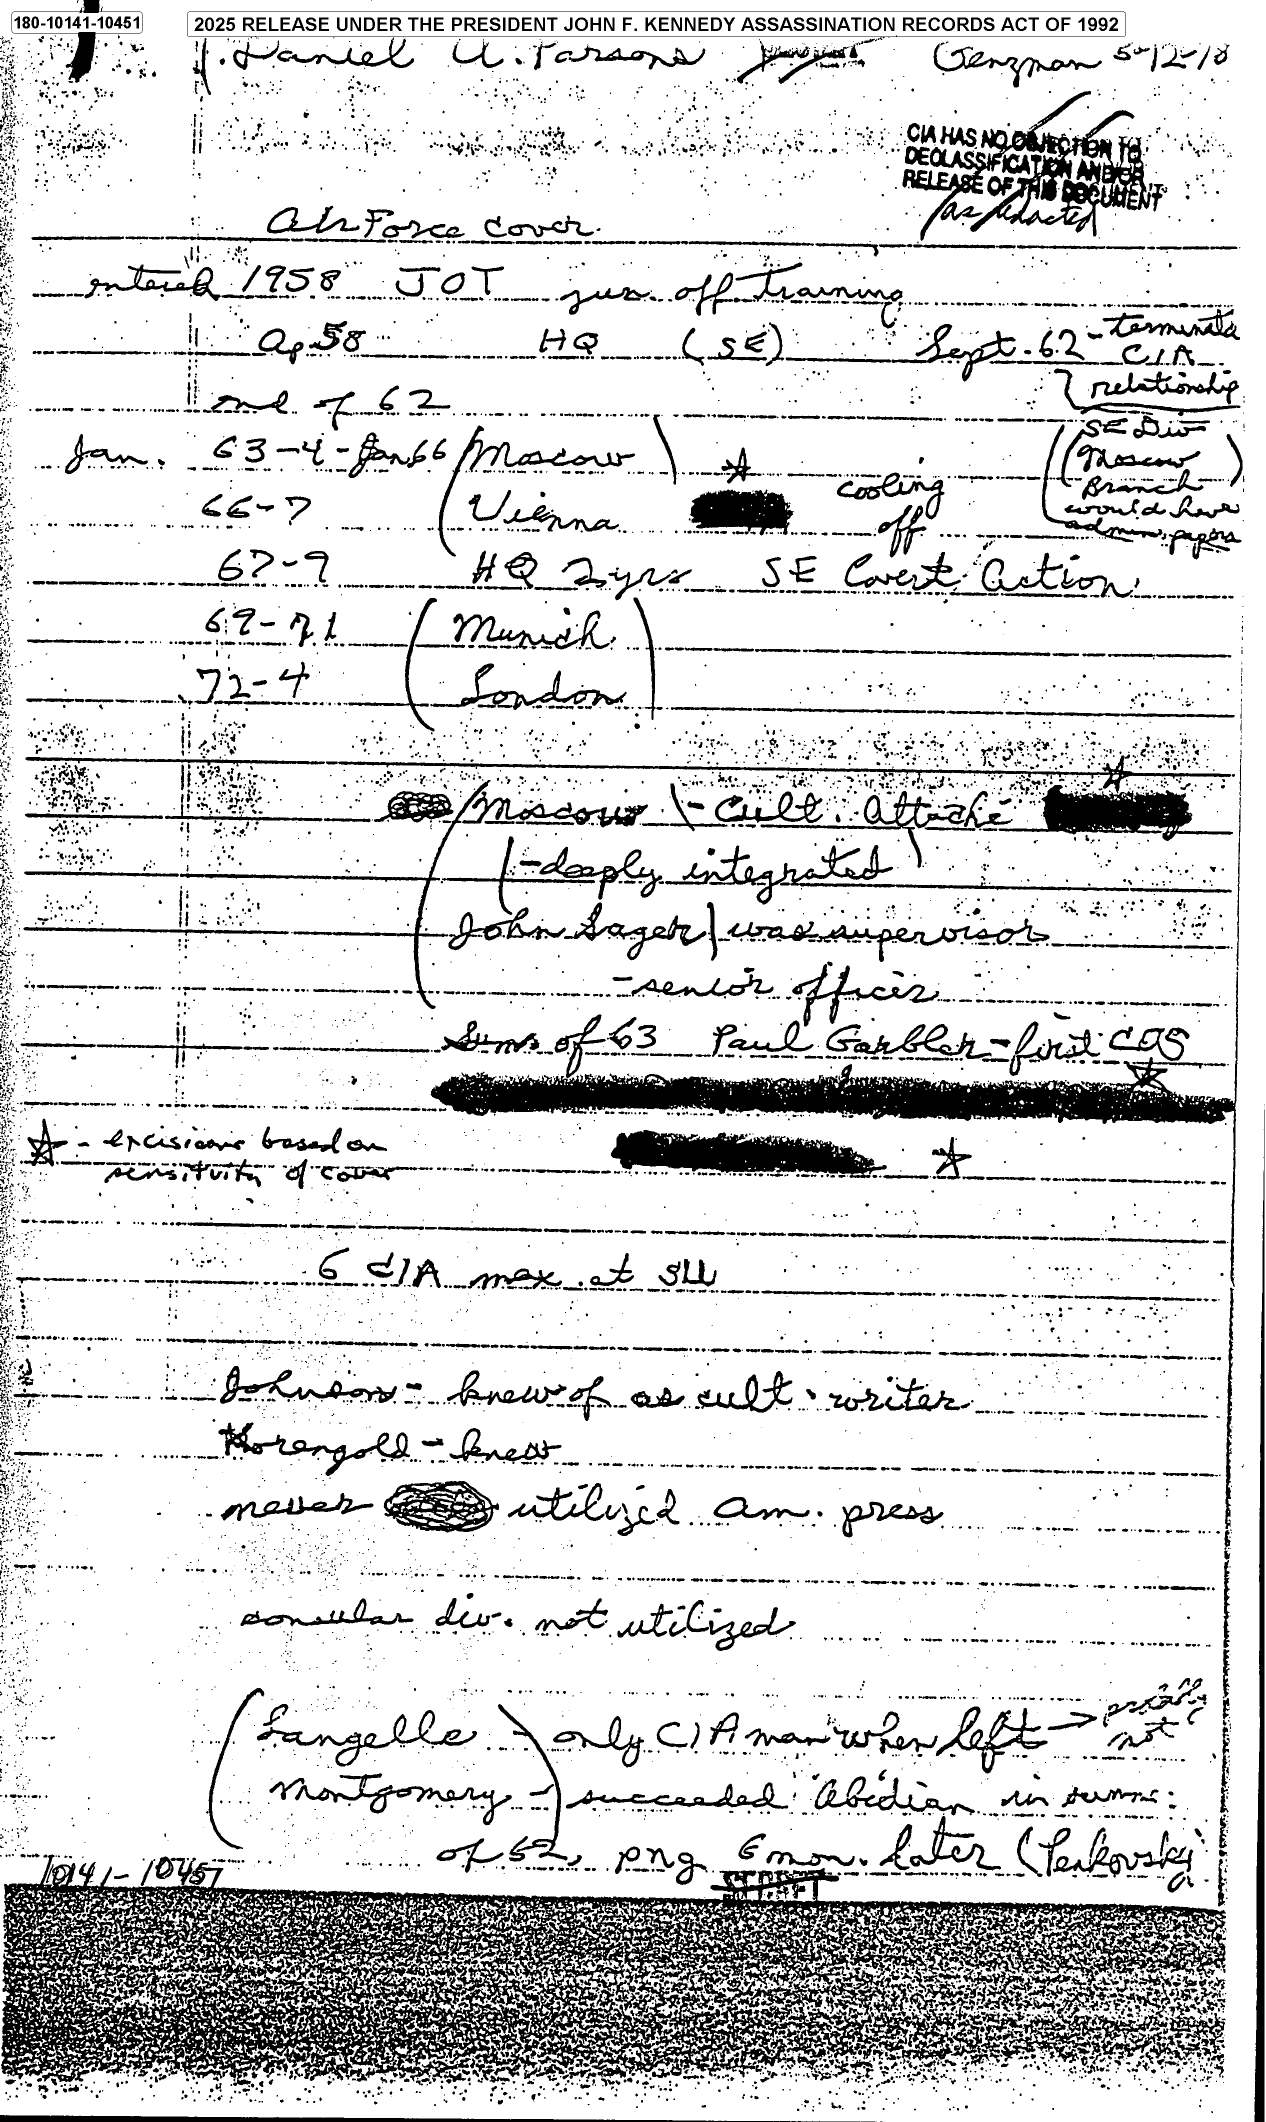 180-10141-10451
2025 RELEASE UNDER THE PRESIDENT JOHN F. KENNEDY ASSASSINATION RECORDS ACT OF 1992
1. Daniel A. Parsons Genzman 5-12-78
CIA HAS NO OBJECTION TO
DECLASSIFICATION AND/OR
RELEASE OF THIS DOCUMENT
as redacted
Air Force cover
entered 1958 JOT jun. off. training
Ap. 58 HQ (SE) Sept. 62 - terminate
CIA
relationship
end of 62
Jan. 63-4-Jan 66 (Moscow)
66-7 (Vienna cooling
off
(SE Div
(Moscow)
Branch
would have
admin. papers
67-9 HQ 2 yrs SE Covert Action
69-71 (Munich)
72-4 (London)
(Moscow) - Cult. Attaché
(- deeply integrated)
John Sager) was supervisor
- senior officer
Sum. of 63 Paul Garbler - first COS
☆ - excisions based on
sensitivity of cover
6 CIA max. at SU
Johnson - knew of as cult. writer
Korengold - knew
never utilized Am. press
consular div. not utilized
(Langelle -) only CIA man when left → not
Montgomery -) succeeded Abidian in summ.
of 62, png 6 mon. later (Penkovsky)
SECRET
10141-10451